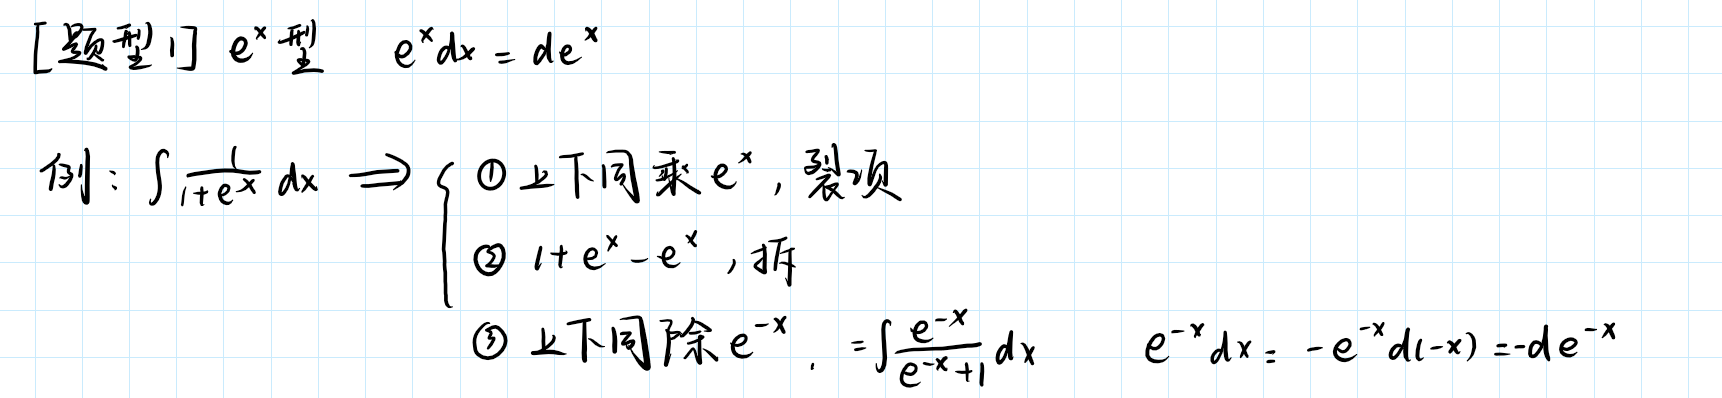 [题型1] eˣ型 eˣdx = deˣ
例: ∫ 1/(1+eˣ) dx ⟹ { ① 上下同乘 eˣ, 裂项
② 1+eˣ-eˣ, 拆
③ 上下同除 e⁻ˣ. = ∫ e⁻ˣ/(e⁻ˣ+1) dx e⁻ˣdx = -e⁻ˣd(-x) = -de⁻ˣ